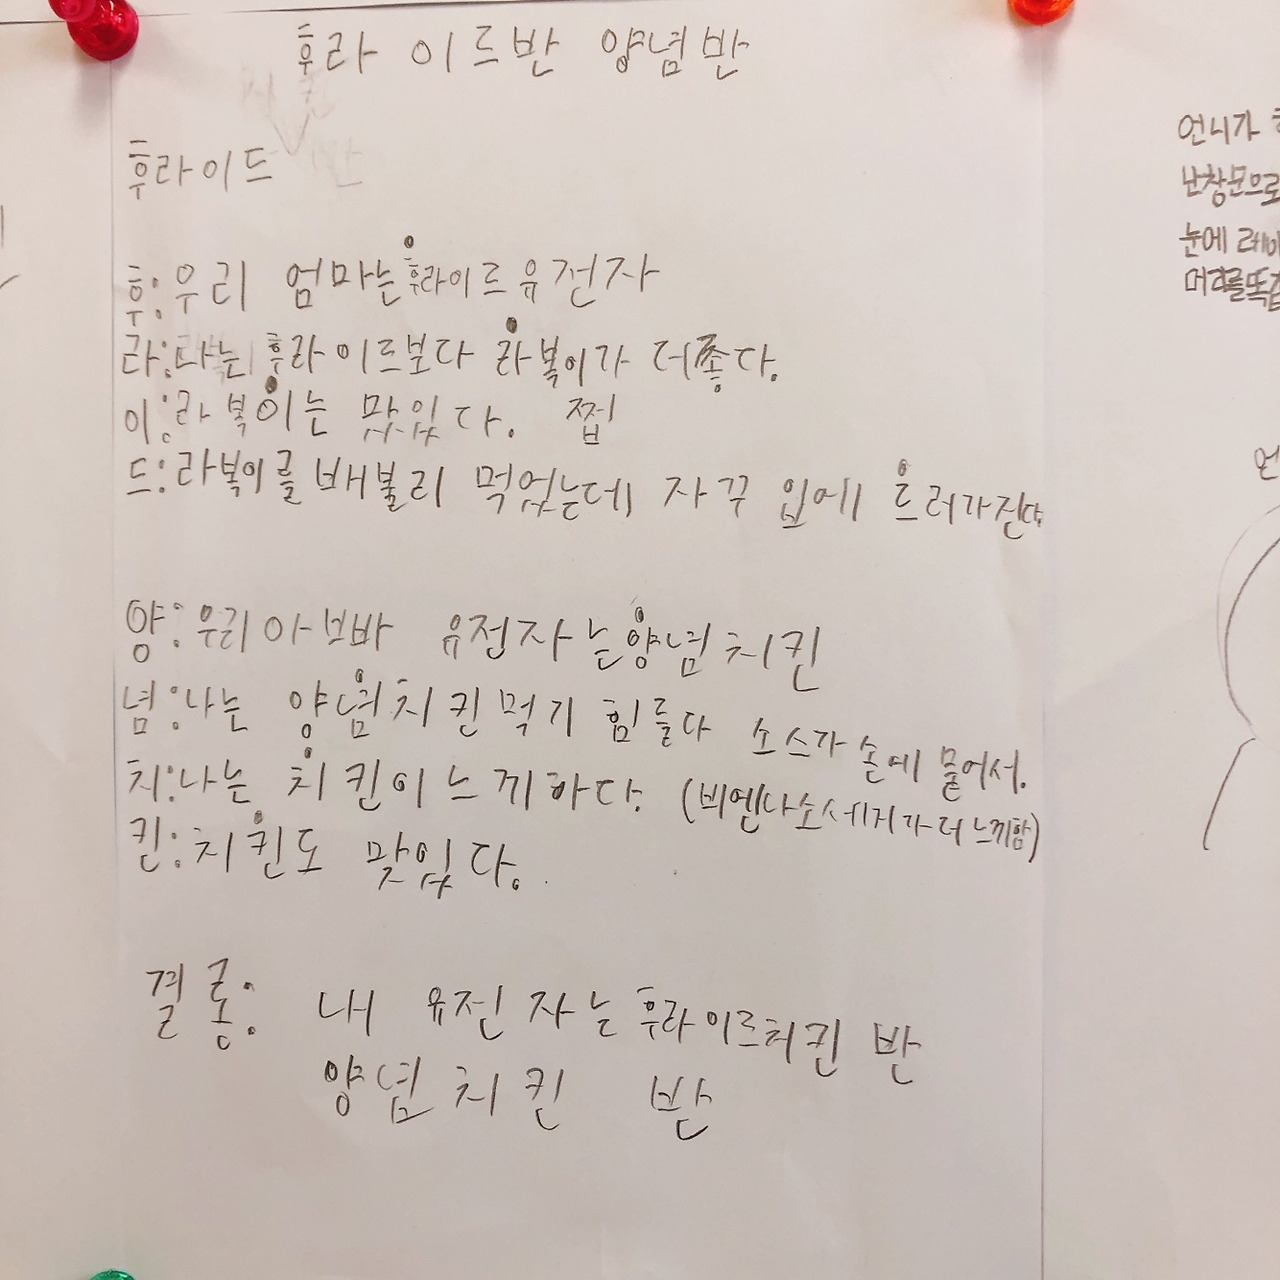 후라이드반 양념반
후라이드
후:우리 엄마는 후라이드 유전자
라:나는 후라이드보다 라볶이가 더좋다.
이:라볶이는 맛있다. 쩝
드:라볶이를 배불리 먹었는데 자꾸 입에 드러가진다
양:우리아쁘바 유전자는양념치킨
념:나는 양념치킨먹기 힘들다 소스가 손에 뭍어서.
치:나는 치킨이느끼하다. (비엔나소세지가더느끼함)
킨:치킨도 맛있다.
결론: 내 유전자는후라이드치킨 반
양념치킨 반
언니가
난창문으로
눈에 레이
머리를똑
언